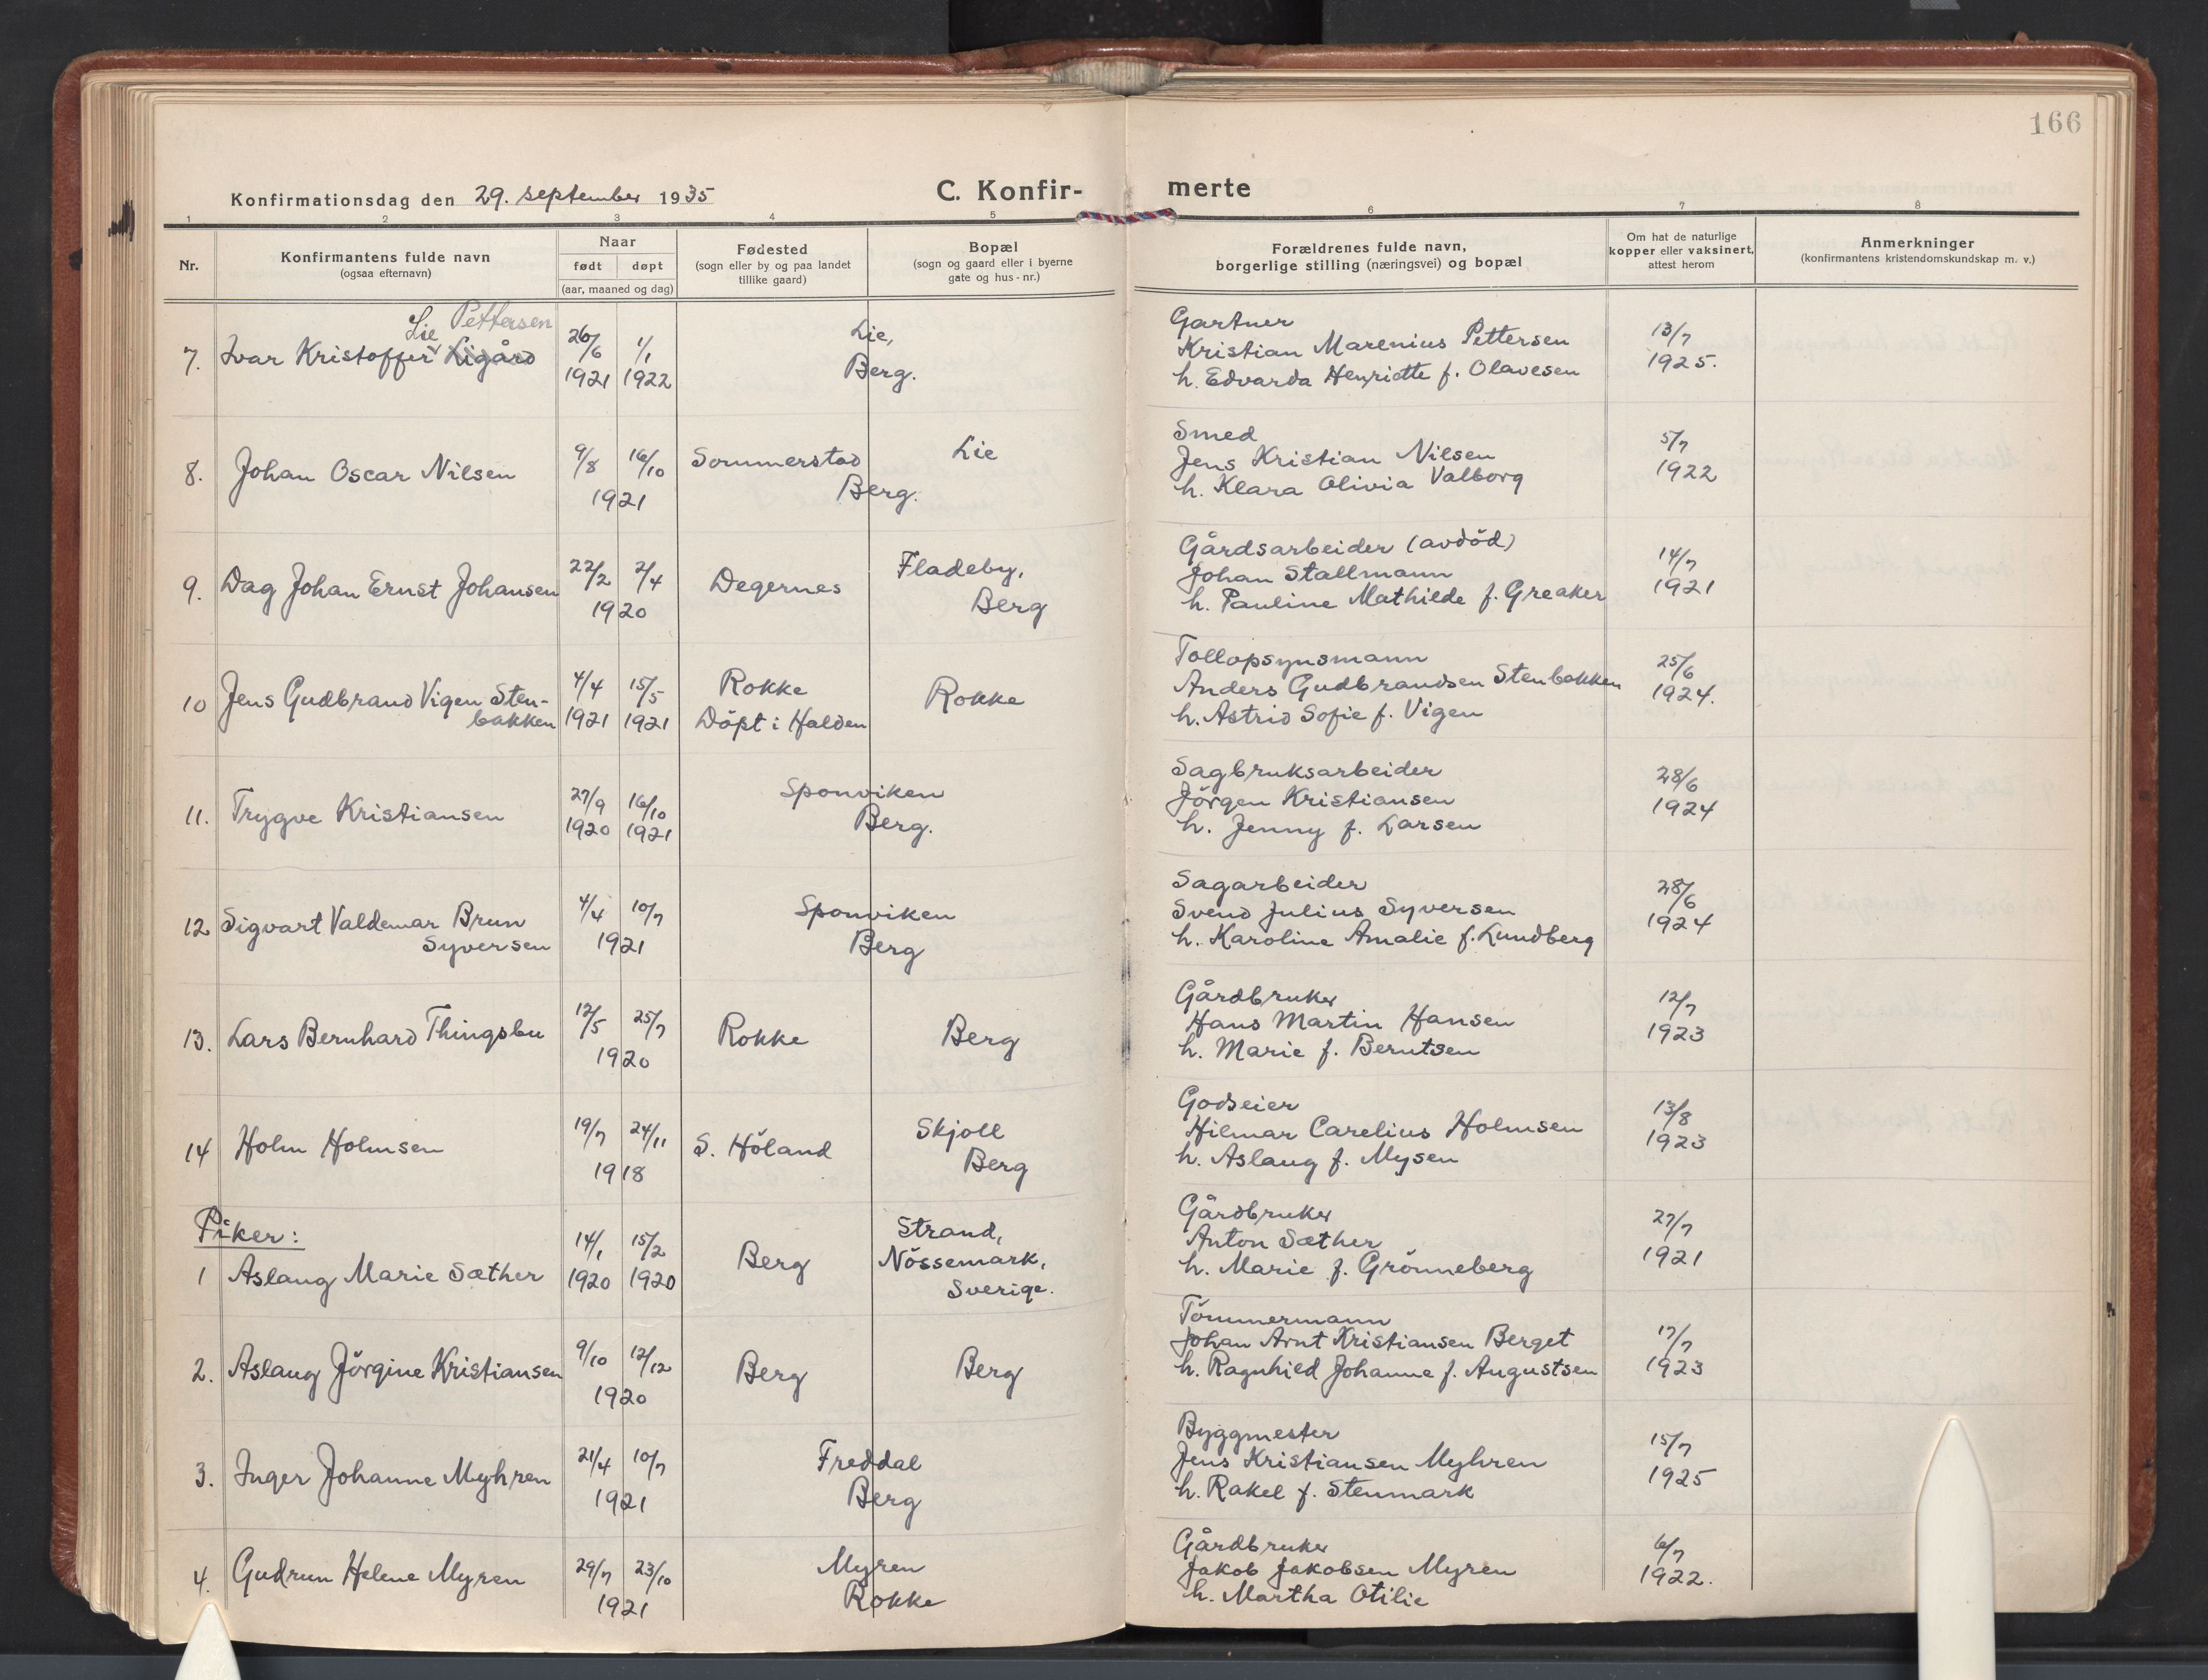 166
Konfirmationsdag den 29. september 1935
C. Konfir-
merte
1 2 3 4 5 6 7 8
Nr.
Konfirmantens fulde navn
(ogsaa efternavn)
Naar
født døpt
(aar, maaned og dag)
Fødested
(sogn eller by og paa landet
tillike gaard)
Bopæl
(sogn og gaard eller i byerne
gate og hus-nr.)
Forældrenes fulde navn,
borgerlige stilling (næringsvei) og bopæl
Om hat de naturlige
kopper eller vaksinert,
attest herom
Anmerkninger
(konfirmantens kristendomskundskap m. v.)
Lie Pettersen
7. Ivar Kristoffer Ligård
26/6 1/1
1921 1922
Lie,
Berg.
Gartner
Kristian Marenius Pettersen
h. Edvarda Henriette f. Olavesen
13/7
1925.
8. Johan Oscar Nilsen
9/8 16/10
1921
Sommerstad
Lie
Berg.
Smed
Jens Kristian Nilsen
h. Klara Olivia Valborg
5/7
1922
9. Dag Johan Ernst Johansen
22/2 2/4
1920
Degernes
Fladeby,
Berg
Gårdsarbeider (avdöd)
Johan Stallmann
h. Pauline Mathilde f. Greaker
14/7
1921
10 Jens Gudbrand Vigen Sten-
bakken
4/4 15/5
1921 1921
Rokke
Döpt i Halden
Rokke
Tollopsynsmann
Anders Gudbrandsen Stenbakken
h. Astrid Sofie f. Vigen
25/6
1924.
11. Trygve Kristiansen
27/9 16/10
1920 1921
Sponviken
Berg.
Sagbruksarbeider
Jörgen Kristiansen
h. Jenny f. Larsen
28/6
1924
12 Sigvart Valdemar Brun
Syversen
4/4 10/7
1921
Sponviken
Berg
Sagarbeider
Svend Julius Syversen
h. Karoline Amalie f. Lundberg
28/6
1924
13. Lars Bernhard Thingsbu
12/5 25/7
1920
Rokke
Berg
Gårdbruker
Hans Martin Hansen
h. Marie f. Berntsen
12/7
1923
14 Holm Holmsen
19/7 24/11
1918
S. Höland
Skjoll
Berg
Godseier
Hilmar Carelius Holmsen
h. Aslaug f. Mysen
13/8
1923
Piker:
1 Aslaug Marie Sæther
14/1 15/2
1920 1920
Berg
Strand,
Nössemark,
Sverige.
Gårdbruker
Anton Sæther
h. Marie f. Grönneberg
27/7
1921
2. Aslaug Jörgine Kristiansen
9/10 12/12
1920
Berg
Berg
Tömmermann
Johan Arnt Kristiansen Berget
h. Ragnhild Johanne f. Augustsen
17/7
1923
3. Inger Johanne Myhren
21/4 10/7
1921
Freddal
Berg
Byggmester
Jens Kristiansen Myhren
h. Rakel f. Stenmark
15/7
1925
4. Gudrun Helene Myren
29/7 23/10
1921
Myren
Rokke
Gårdbruker
Jakob Jakobsen Myren
h. Martha Otilie
6/7
1922.